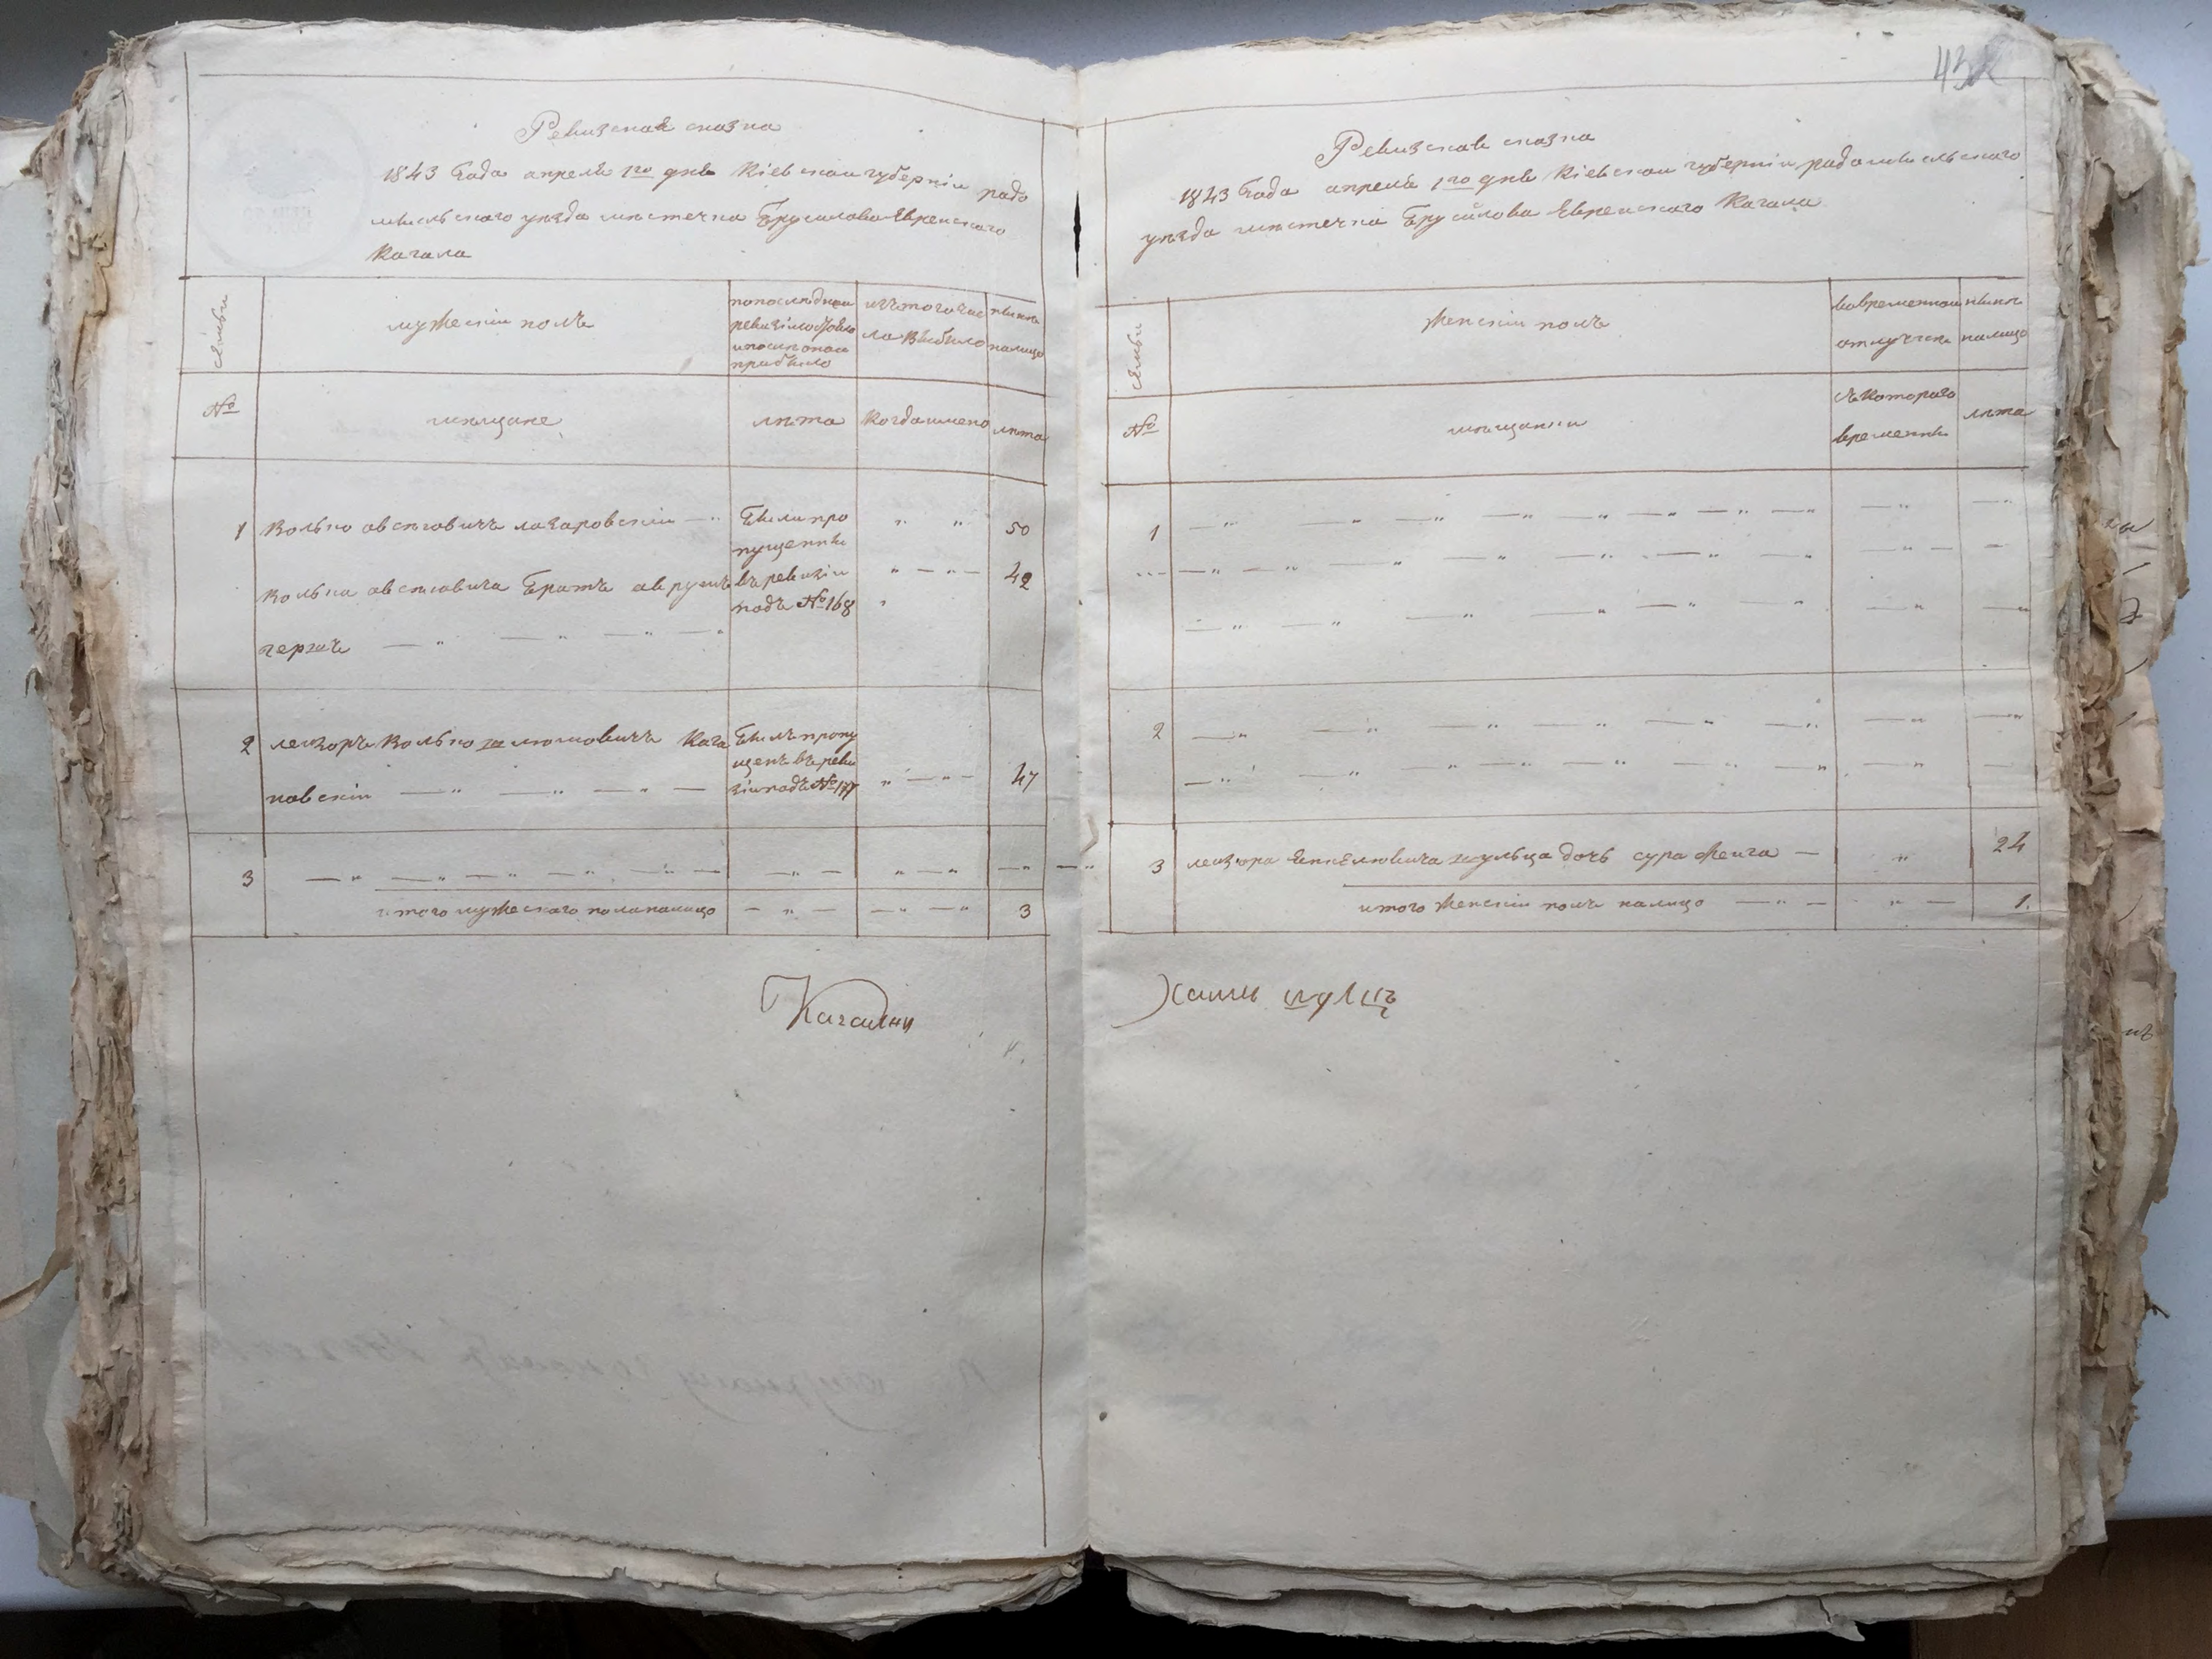 Ревизская сказка
1843 Года апреля 1го дня Кіевской губерніи радо
мысльского уезда местечка Брусилова Еврейского
Кагала
семьи
мужескій полъ
по последней
ревизіи состояло
и после оной
прибыло
изъ того чис
ла выбыло
ныне
налицо
№
мещане
лета
Когда имено
лета
1 Волько Овсеговичъ лазаровскій — "
Были про
пущенны
въ ревизіи
подъ № 168
" " 50
Волька Овсеговича Братъ авру
" — " — 42
гершъ — " — " — " — "
2 лейзоръ Волько шлюмовичъ Кага
новскій — " — " — " —
Былъ пропу
щенъ въ реви
зіи подъ № 177
" — " — 47
3 — " — " — " — " — " — — " — " — " — "
итого мужеского пола налицо — " — — " — " 3
Кагалны
432
Ревизская сказка
1843 Года апреля 1го дня Кіевской губерніи радомысльского
уезда местечка Брусилова Еврейского Кагала
семьи
женскій полъ
во временной
отлучке
ныне
налицо
№
мещанки
съ которого
временны
лета
1 — " " — " — " — " — " — " — " — " — "
2 — " — " — " — " — " — " — " — "
3 лейзора Енкелювича шульца дочь сура фейга — " 24
итого женскій полъ налицо — " — " — 1.
Хаимъ шулцъ